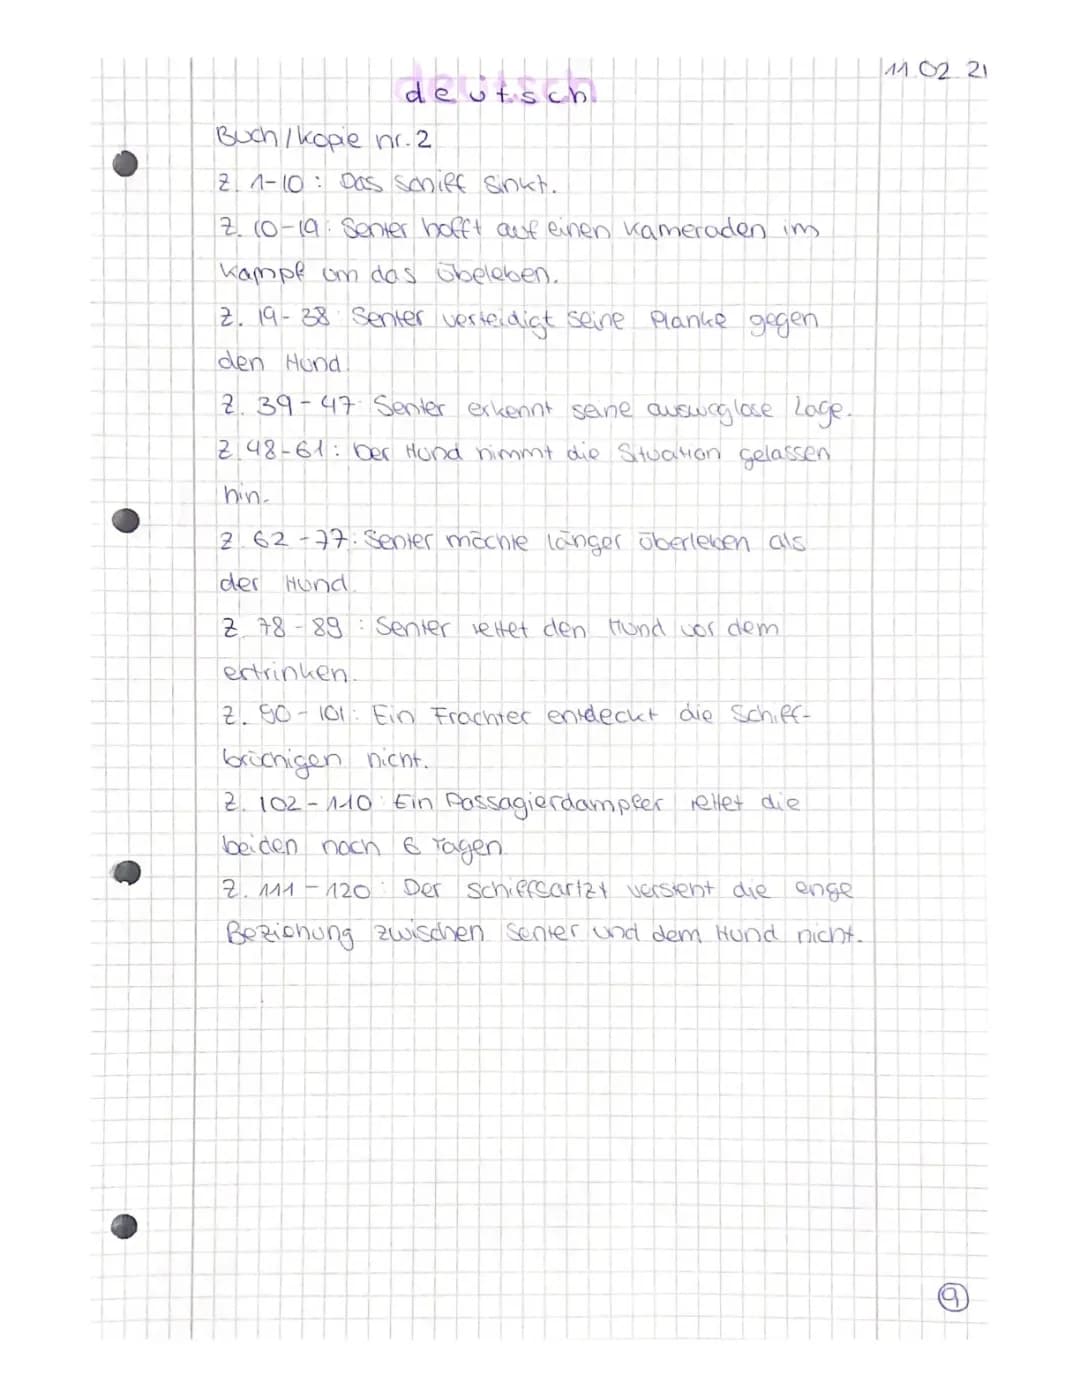 11 02 21
deutsch
Buch/kopie nr. 2
Z. 1-10: Das Schiff sinkt.
Z. 10-19: Senter hofft auf einen kameraden im
kampf um das übeleben.
Z. 19-38: Senter verteidigt seine Planke gegen
den Hund.
Z. 39-47: Senter erkennt seine ausweglose Lage.
Z. 48-61: Der Hund nimmt die Situation gelassen
hin.
Z. 62-77: Senter möchte länger überleben als
der Hund.
Z. 78-89: Senter rettet den Hund vor dem
ertrinken.
Z. 90-101: Ein Frachter entdeckt die Schiff-
brüchigen nicht.
Z. 102-110: Ein Passagierdampfer rettet die
beiden nach 6 Tagen.
Z. 111-120: Der Schiffsartzt versteht die enge
Beziehung zwischen Senter und dem Hund nicht.
9